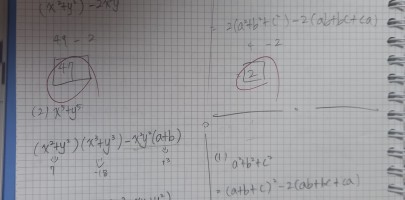 (x²+y²)-2x²y²
49 - 2
47
(2) x⁵+y⁵
(x²+y²)(x³+y³)-x²y²(a+b)
7 -18 +3
= 2(a²+b²+c²)-2(ab+bc+ca)
4 -2
2
(1) a²+b²+c²
=(a+b+c)²-2(ab+bc+ca)